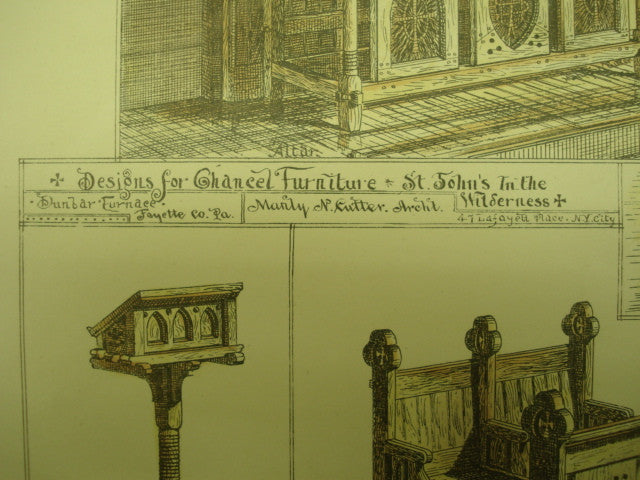 Altar
Designs for Chancel Furniture St. John's In the
Wilderness
Dunbar Furnace
Fayette Co. Pa.
Manly N. Cutter. Archt.
47 Lafayett Place. N.Y. City